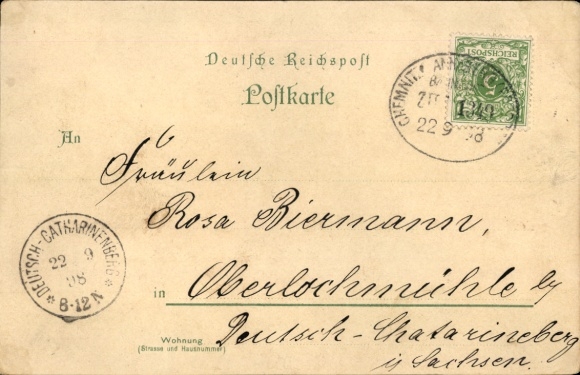 Deutsche Reichspost
Postkarte
REICHSPOST
CHEMNITZ
1349
22 9 98
An
Fräulein
Rosa Biermann,
DEUTSCH-CATHARINENBERG
22 9
98
* 8-12 N *
in Oberlochmühle by
Deutsch-Chatarineberg
i/ Sachsen.
Wohnung
(Strasse und Hausnummer)